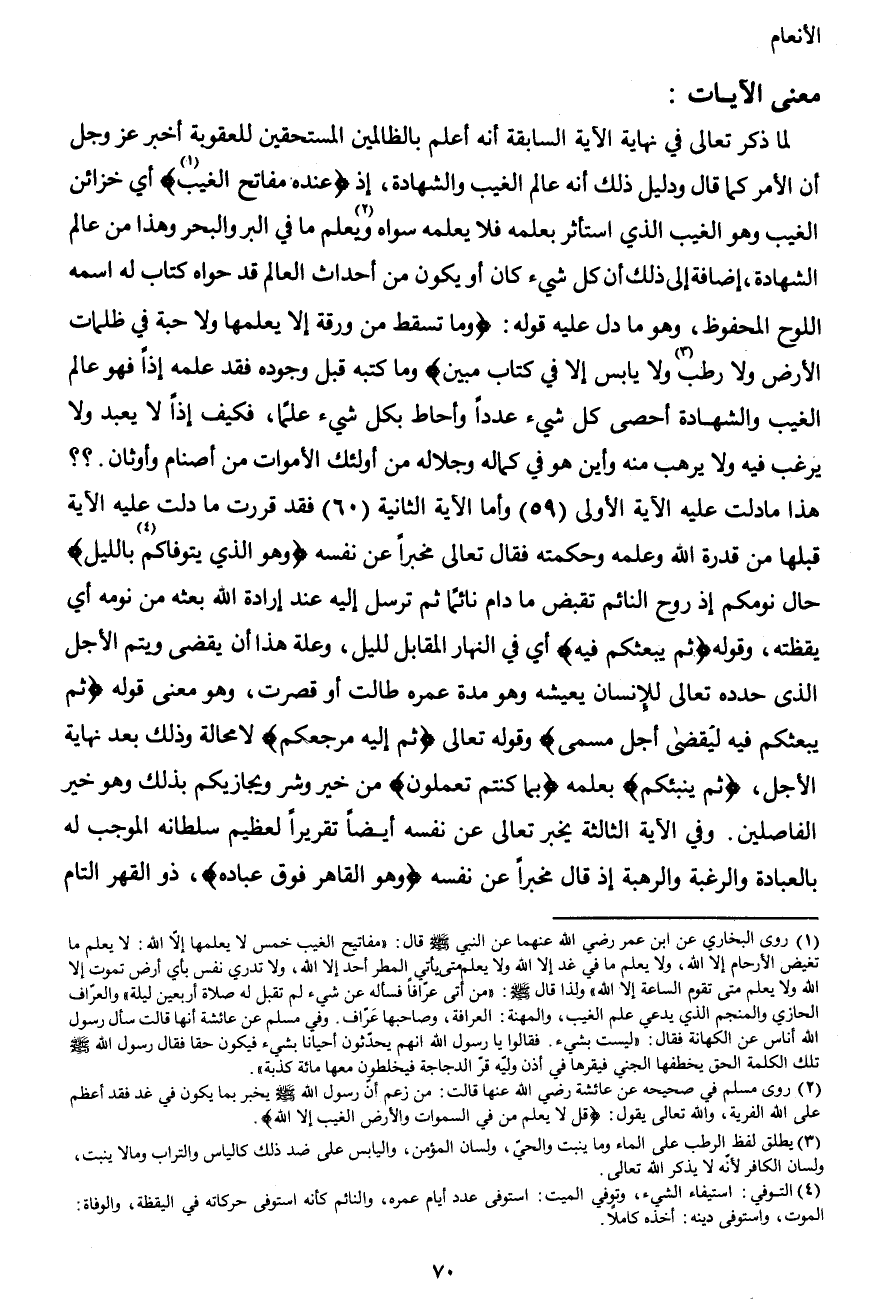 الأنعام
معنى الآيـات :
لما ذكر تعالى في نهاية الآية السابقة أنه أعلم بالظالمين المستحقين للعقوبة أخبر عز وجل
أن الأمر كما قال ودليل ذلك أنه عالم الغيب والشهادة، إذ ﴿عنده مفاتح الغيب﴾(١) أي خزائن
الغيب وهو الغيب الذي استأثر بعلمه فلا يعلمه سواه ويعلم(٢) ما في البر والبحر وهذا من عالم
الشهادة، إضافة إلى ذلك أن كل شيء كان أو يكون من أحداث العالم قد حواه كتاب له اسمه
اللوح المحفوظ، وهو ما دل عليه قوله: ﴿وما تسقط من ورقة إلا يعلمها ولا حبة في ظلمات
الأرض ولا رطب(٣) ولا يابس إلا في كتاب مبين﴾ وما كتبه قبل وجوده فقد علمه إذاً فهو عالم
الغيب والشهـادة أحصى كل شيء عدداً وأحاط بكل شيء علمًا، فكيف إذاً لا يعبد ولا
يرغب فيه ولا يرهب منه وأين هو في كماله وجلاله من أولئك الأموات من أصنام وأوثان . ؟؟
هذا مادلت عليه الآية الأولى (٥٩) وأما الآية الثانية (٦٠) فقد قررت ما دلت عليه الآية
قبلها من قدرة الله وعلمه وحكمته فقال تعالى مخبراً عن نفسه ﴿وهو الذي يتوفاكم(٤) بالليل﴾
حال نومكم إذ روح النائم تقبض ما دام نائمًا ثم ترسل إليه عند إرادة الله بعثه من نومه أي
يقظته، وقوله﴿ثم يبعثكم فيه﴾ أي في النهار المقابل لليل، وعلة هذا أن يقضى ويتم الأجل
الذى حدده تعالى للإنسان يعيشه وهو مدة عمره طالت أو قصرت، وهو معنى قوله ﴿ثم
يبعثكم فيه ليُقضىٰ أجل مسمى﴾ وقوله تعالى ﴿ثم إليه مرجعكم﴾ لامحالة وذلك بعد نهاية
الأجل، ﴿ثم ينبئكم﴾ بعلمه ﴿بما كنتم تعملون﴾ من خير وشر ويجازيكم بذلك وهو خير
الفاصلين. وفي الآية الثالثة يخبر تعالى عن نفسه أيـضاً تقريراً لعظيم سلطانه الموجب له
بالعبادة والرغبة والرهبة إذ قال مخبراً عن نفسه ﴿وهو القاهر فوق عباده﴾، ذو القهر التام
(١) روى البخاري عن ابن عمر رضي الله عنهما عن النبي ﷺ قال: «مفاتيح الغيب خمس لا يعلمها إلّا الله: لا يعلم ما
تغيض الأرحام إلا الله، ولا يعلم ما في غد إلا الله ولا يعلم متى يأتي المطر أحد إلا الله، ولا تدري نفس بأي أرض تموت إلا
الله ولا يعلم متى تقوم الساعة إلا الله» ولذا قال ﷺ: «من أتى عرّافاً فسأله عن شيء لم تقبل له صلاة أربعين ليلة» والعرّاف
الحازي والمنجم الذي يدعي علم الغيب، والمهنة: العرافة، وصاحبها عَرّاف. وفي مسلم عن عائشة أنها قالت سأل رسول
الله أناس عن الكهانة فقال: «ليست بشيء. فقالوا يا رسول الله انهم يحدّثون أحيانا بشيء فيكون حقا فقال رسول الله ﷺ
تلك الكلمة الحق يخطفها الجني فيقرها في أذن وليّه قرّ الدجاجة فيخلطون معها مائة كذبة».
(٢) روى مسلم في صحيحه عن عائشة رضي الله عنها قالت: من زعم أنّ رسول الله ﷺ يخبر بما يكون في غد فقد أعظم
على الله الفرية، والله تعالى يقول: ﴿قل لا يعلم من في السموات والأرض الغيب إلا الله﴾.
(٣) يطلق لفظ الرطب على الماء وما ينبت والحيّ، ولسان المؤمن، واليابس على ضد ذلك كالياس والتراب ومالا ينبت،
ولسان الكافر لأنّه لا يذكر الله تعالى.
(٤) التـوفي: استيفاء الشيء، وتوفي الميت: استوفى عدد أيام عمره، والنائم كأنه استوفى حركاته في اليقظة، والوفاة:
الموت، واستوفى دينه: أخذه كاملاً.
٧٠